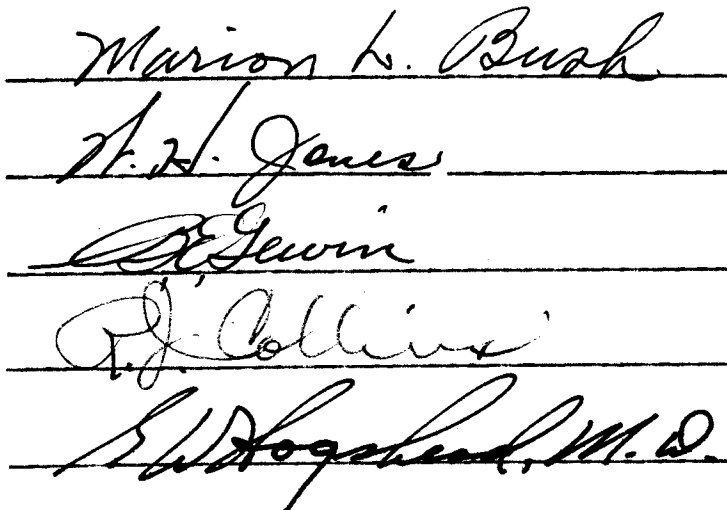 Marion L. Bush
W. H. Jones
Gewin
R.J. Collins
E W Hogshead, M.D.